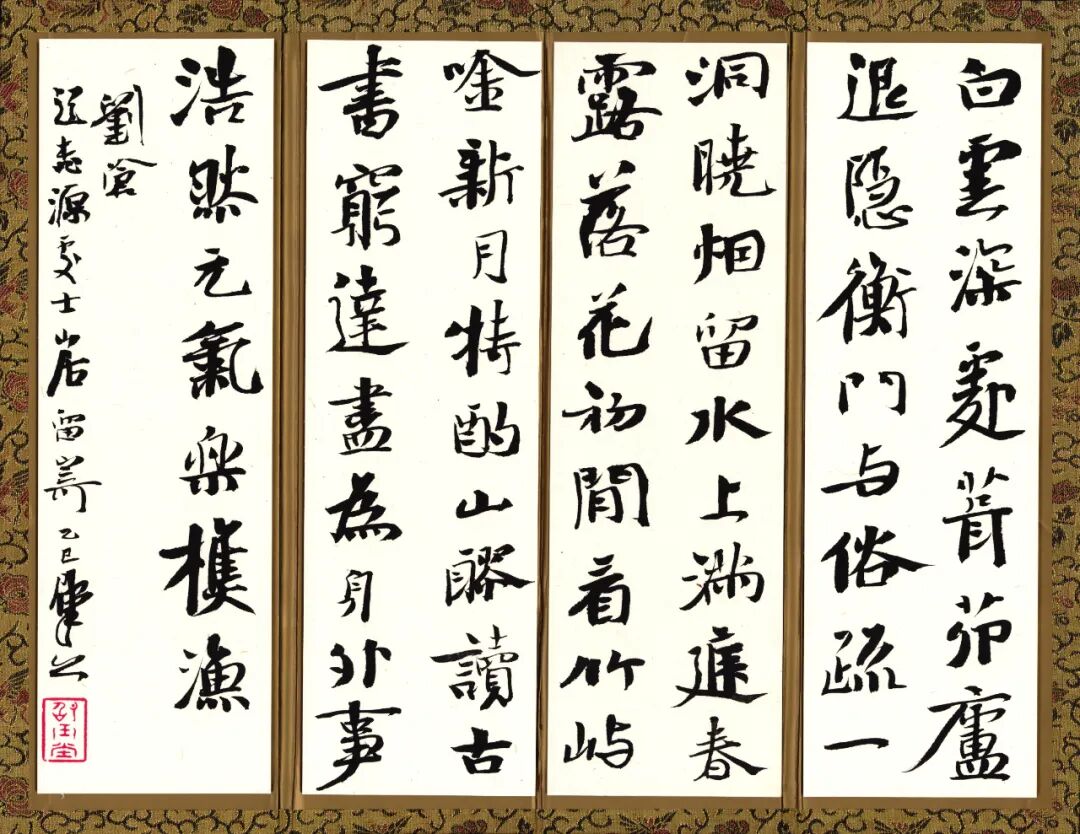 白雲深處葺茆廬
退隐衡門与俗疏一
洞曉烟留水上满庭春
露落花初閒看竹屿
唫新月特酌山醪讀古
書窮達盡為身外事
浩然元氣樂樵漁
劉滄
題志源處士山居留寄 乙巳